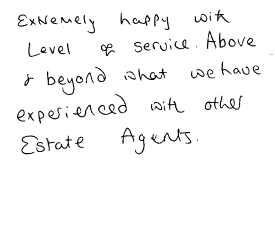 Extremely happy with
Level of service. Above
& beyond what we have
experienced with other
Estate Agents.